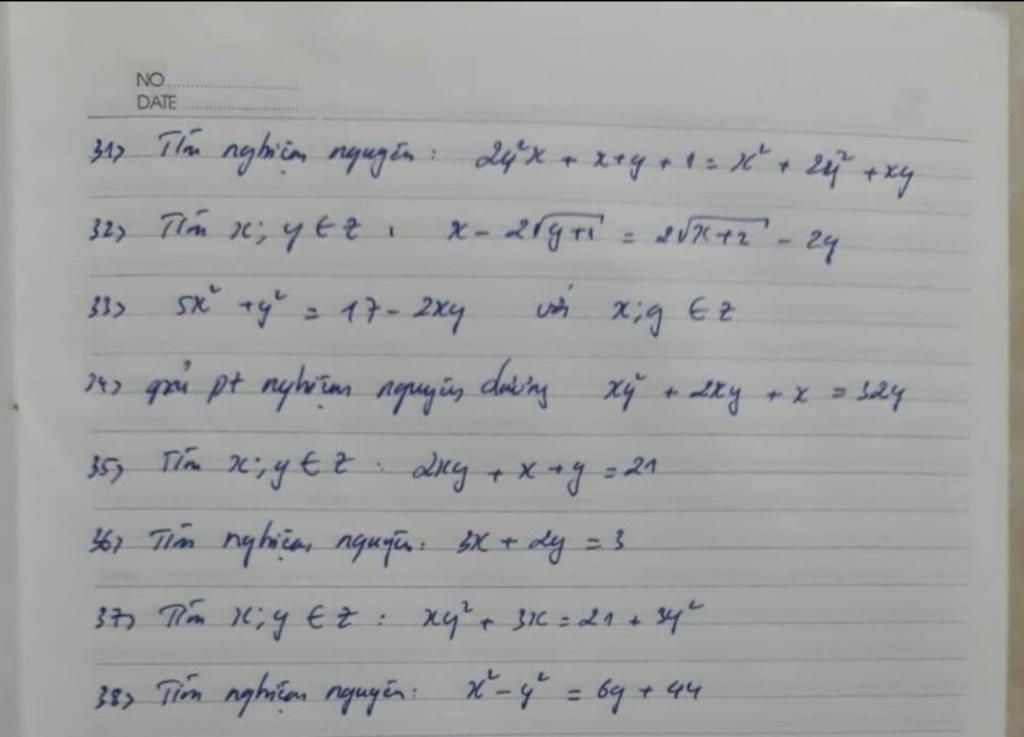 NO
DATE
31) Tìm nghiệm nguyên: 2y²x + x + y + 1 = x² + 2y² + xy
32) Tìm x; y ∈ Z: x - 2√(y+1) = 2√(x+2) - 2y
33) 5x² + y² = 17 - 2xy với x; y ∈ Z
34) giải pt nghiệm nguyên dương xy² + 2xy + x = 32y
35) Tìm x; y ∈ Z: 2xy + x + y = 21
36) Tìm nghiệm nguyên: 3x + 2y = 3
37) Tìm x; y ∈ Z: xy² + 3x = 21 + 3y²
38) Tìm nghiệm nguyên: x² - y² = 6y + 44